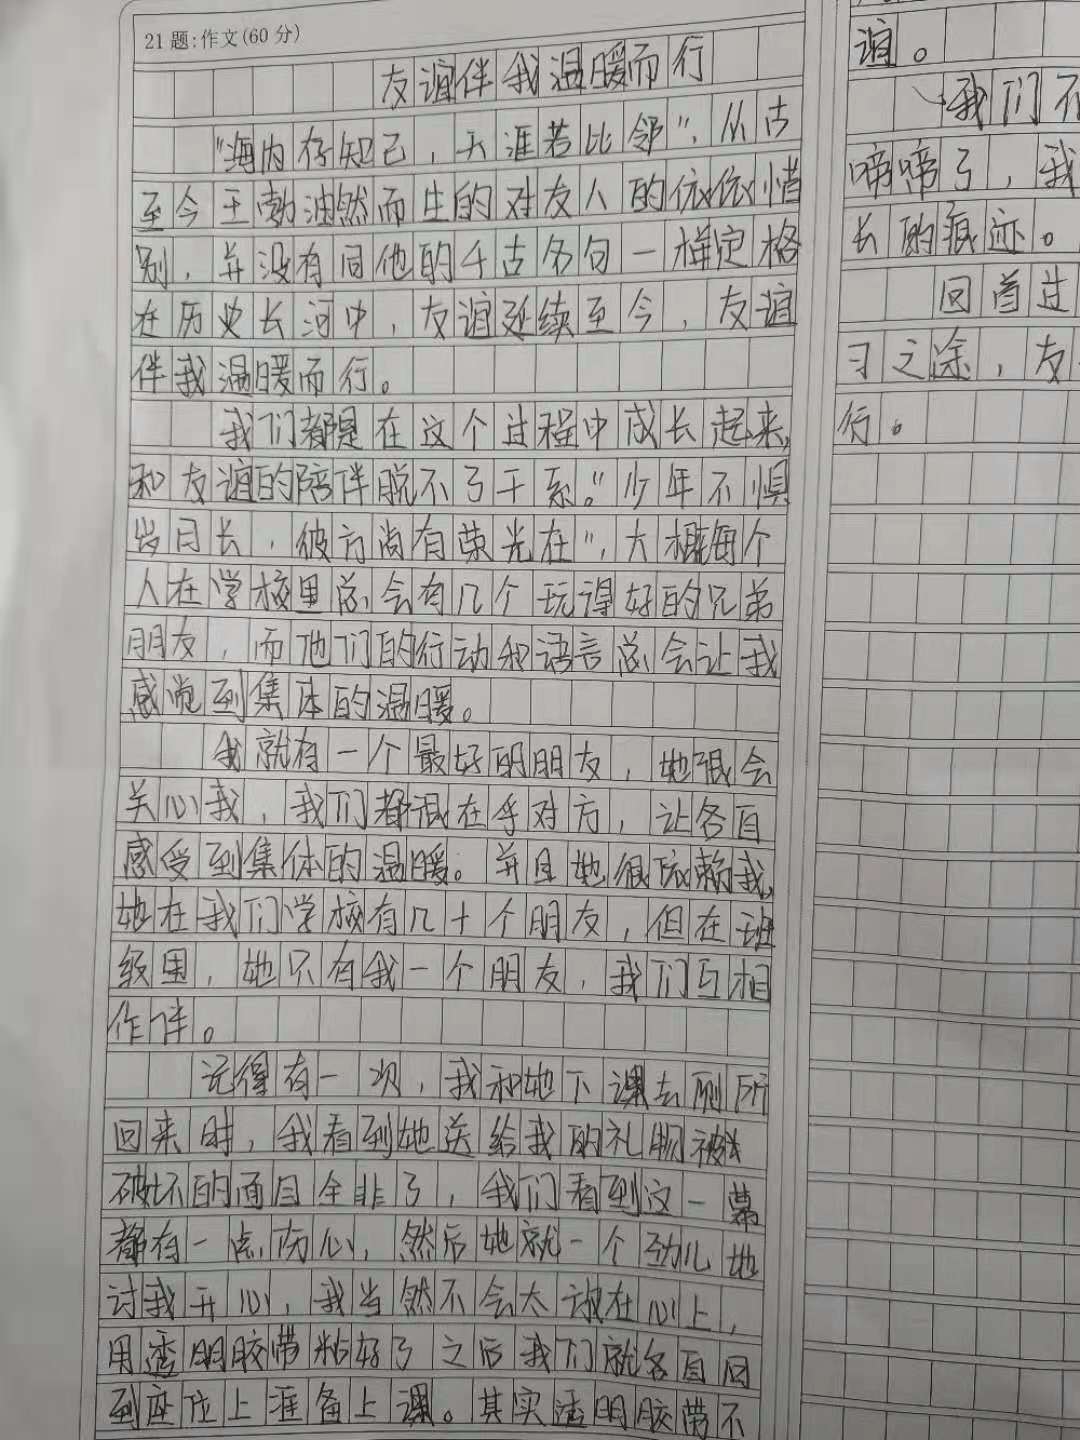 21题:作文(60分)
友谊伴我温暖而行
"海内存知己，天涯若比邻"，从古
至今王勃油然而生的对友人的依依惜
别，并没有同他的千古名句一样定格
在历史长河中，友谊延续至今，友谊
伴我温暖而行。
我们都是在这个过程中成长起来，
和友谊的陪伴脱不了干系。"少年不惧
岁月长，彼方尚有荣光在"，大概每个
人在学校里总会有几个玩得好的兄弟
朋友，而他们的行动和语言总会让我
感觉到集体的温暖。
我就有一个最好的朋友，她很会
关心我，我们都很在乎对方，让各自
感受到集体的温暖。并且她很依赖我，
她在我们学校有几十个朋友，但在班
级里，她只有我一个朋友，我们互相
作伴。
记得有一次，我和她下课去厕所
回来时，我看到她送给我的礼物被
破坏的面目全非了，我们看到这一幕
都有一点伤心，然后她就一个劲儿地
讨我开心，我当然不会太放在心上，
用透明胶带粘好了之后我们就各自回
到座位上准备上课。其实透明胶带不
谊。
我们不
啼啼了，我
长的痕迹。
回首过
习之途，友
行。